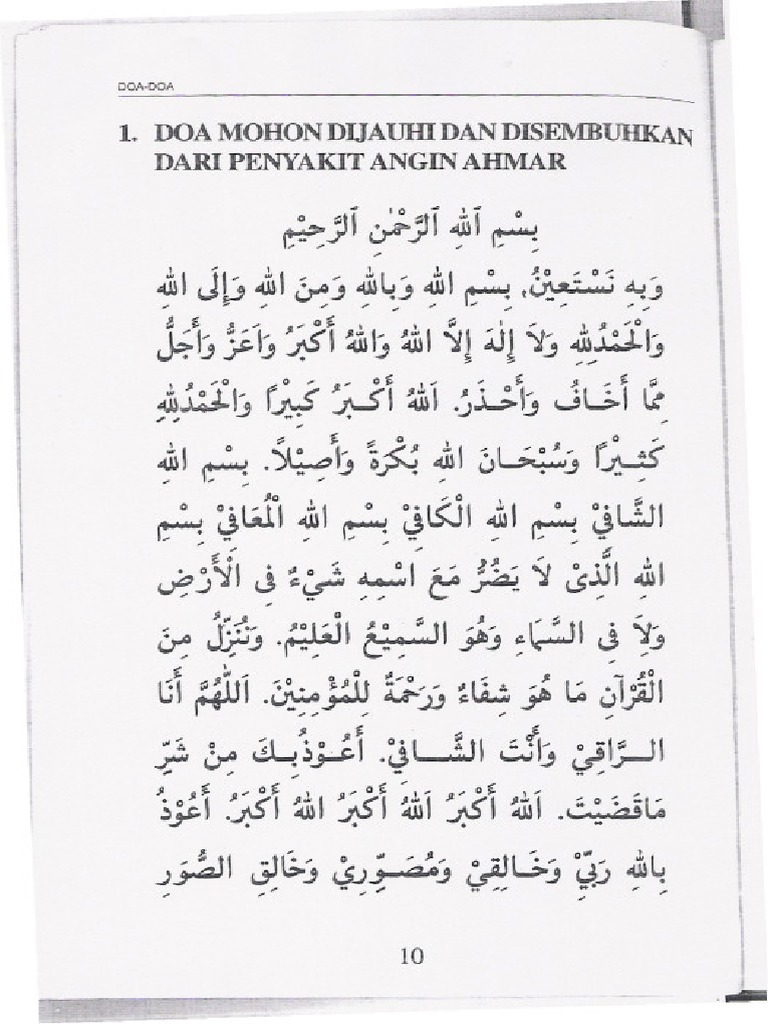 DOA-DOA
1. DOA MOHON DIJAUHI DAN DISEMBUHKAN
DARI PENYAKIT ANGIN AHMAR
بِسْمِ ٱللهِ ٱلرَّحْمٰنِ ٱلرَّحِيْمِ
وَبِهِ نَسْتَعِيْنُ, بِسْمِ اللهِ وَبِاللهِ وَمِنَ اللهِ وَإِلَى اللهِ
وَالْحَمْدُلِلهِ وَلاَ إِلٰهَ إِلَّا اللهُ وَاللهُ أَكْبَرُ وَاَعَزُّ وَأَجَلُّ
مِمَّا أَخَافُ وَأَحْذَرُ. اَللهُ أَكْبَرُ كَبِيْرًا وَالْحَمْدُلِلهِ
كَثِيْرًا وَسُبْحَانَ اللهِ بُكْرَةً وَأَصِيْلاً. بِسْمِ اللهِ
الشَّافِيْ بِسْمِ اللهِ الْكَافِيْ بِسْمِ اللهِ الْمُعَافِيْ بِسْمِ
اللهِ الَّذِىْ لَا يَضُرُّ مَعَ اسْمِهِ شَيْءٌ فِى الْأَرْضِ
وَلاَ فِى السَّمَاءِ وَهُوَ السَّمِيْعُ الْعَلِيْمُ. وَنُنَزِّلُ مِنَ
الْقُرْآنِ مَا هُوَ شِفَاءٌ وَرَحْمَةٌ لِلْمُؤْمِنِيْنَ. اَللّٰهُمَّ أَنَا
الرَّاقِيْ وَأَنْتَ الشَّافِيْ. أَعُوْذُبِكَ مِنْ شَرِّ
مَاقَضَيْتَ. اَللهُ أَكْبَرُ اَللهُ أَكْبَرُ اللهُ أَكْبَرُ. أَعُوْذُ
بِاللهِ رَبِّيْ وَخَالِقِيْ وَمُصَوِّرِيْ وَخَالِقِ الصُّوَرِ
10